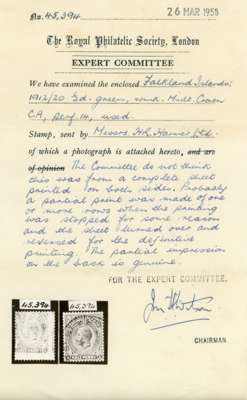 No. 45,394
26 MAR 1958
The Royal Philatelic Society, London
EXPERT COMMITTEE
We have examined the enclosed Falkland Islands:
1912/20 ½d. green, wmk. Mult. Crown
CA, perf 14, used.
Stamp, sent by Messrs. H.R. Harmer Ltd.
of which a photograph is attached hereto, and are
of opinion The Committee do not think
this was from a complete sheet
printed on both sides. Probably
a partial print was made of one
or more rows when the printing
was stopped for some reason
and the sheet turned over and
reversed for the definitive
printing. The partial impression
on the back is genuine.
FOR THE EXPERT COMMITTEE,
CHAIRMAN
45,394
45,394